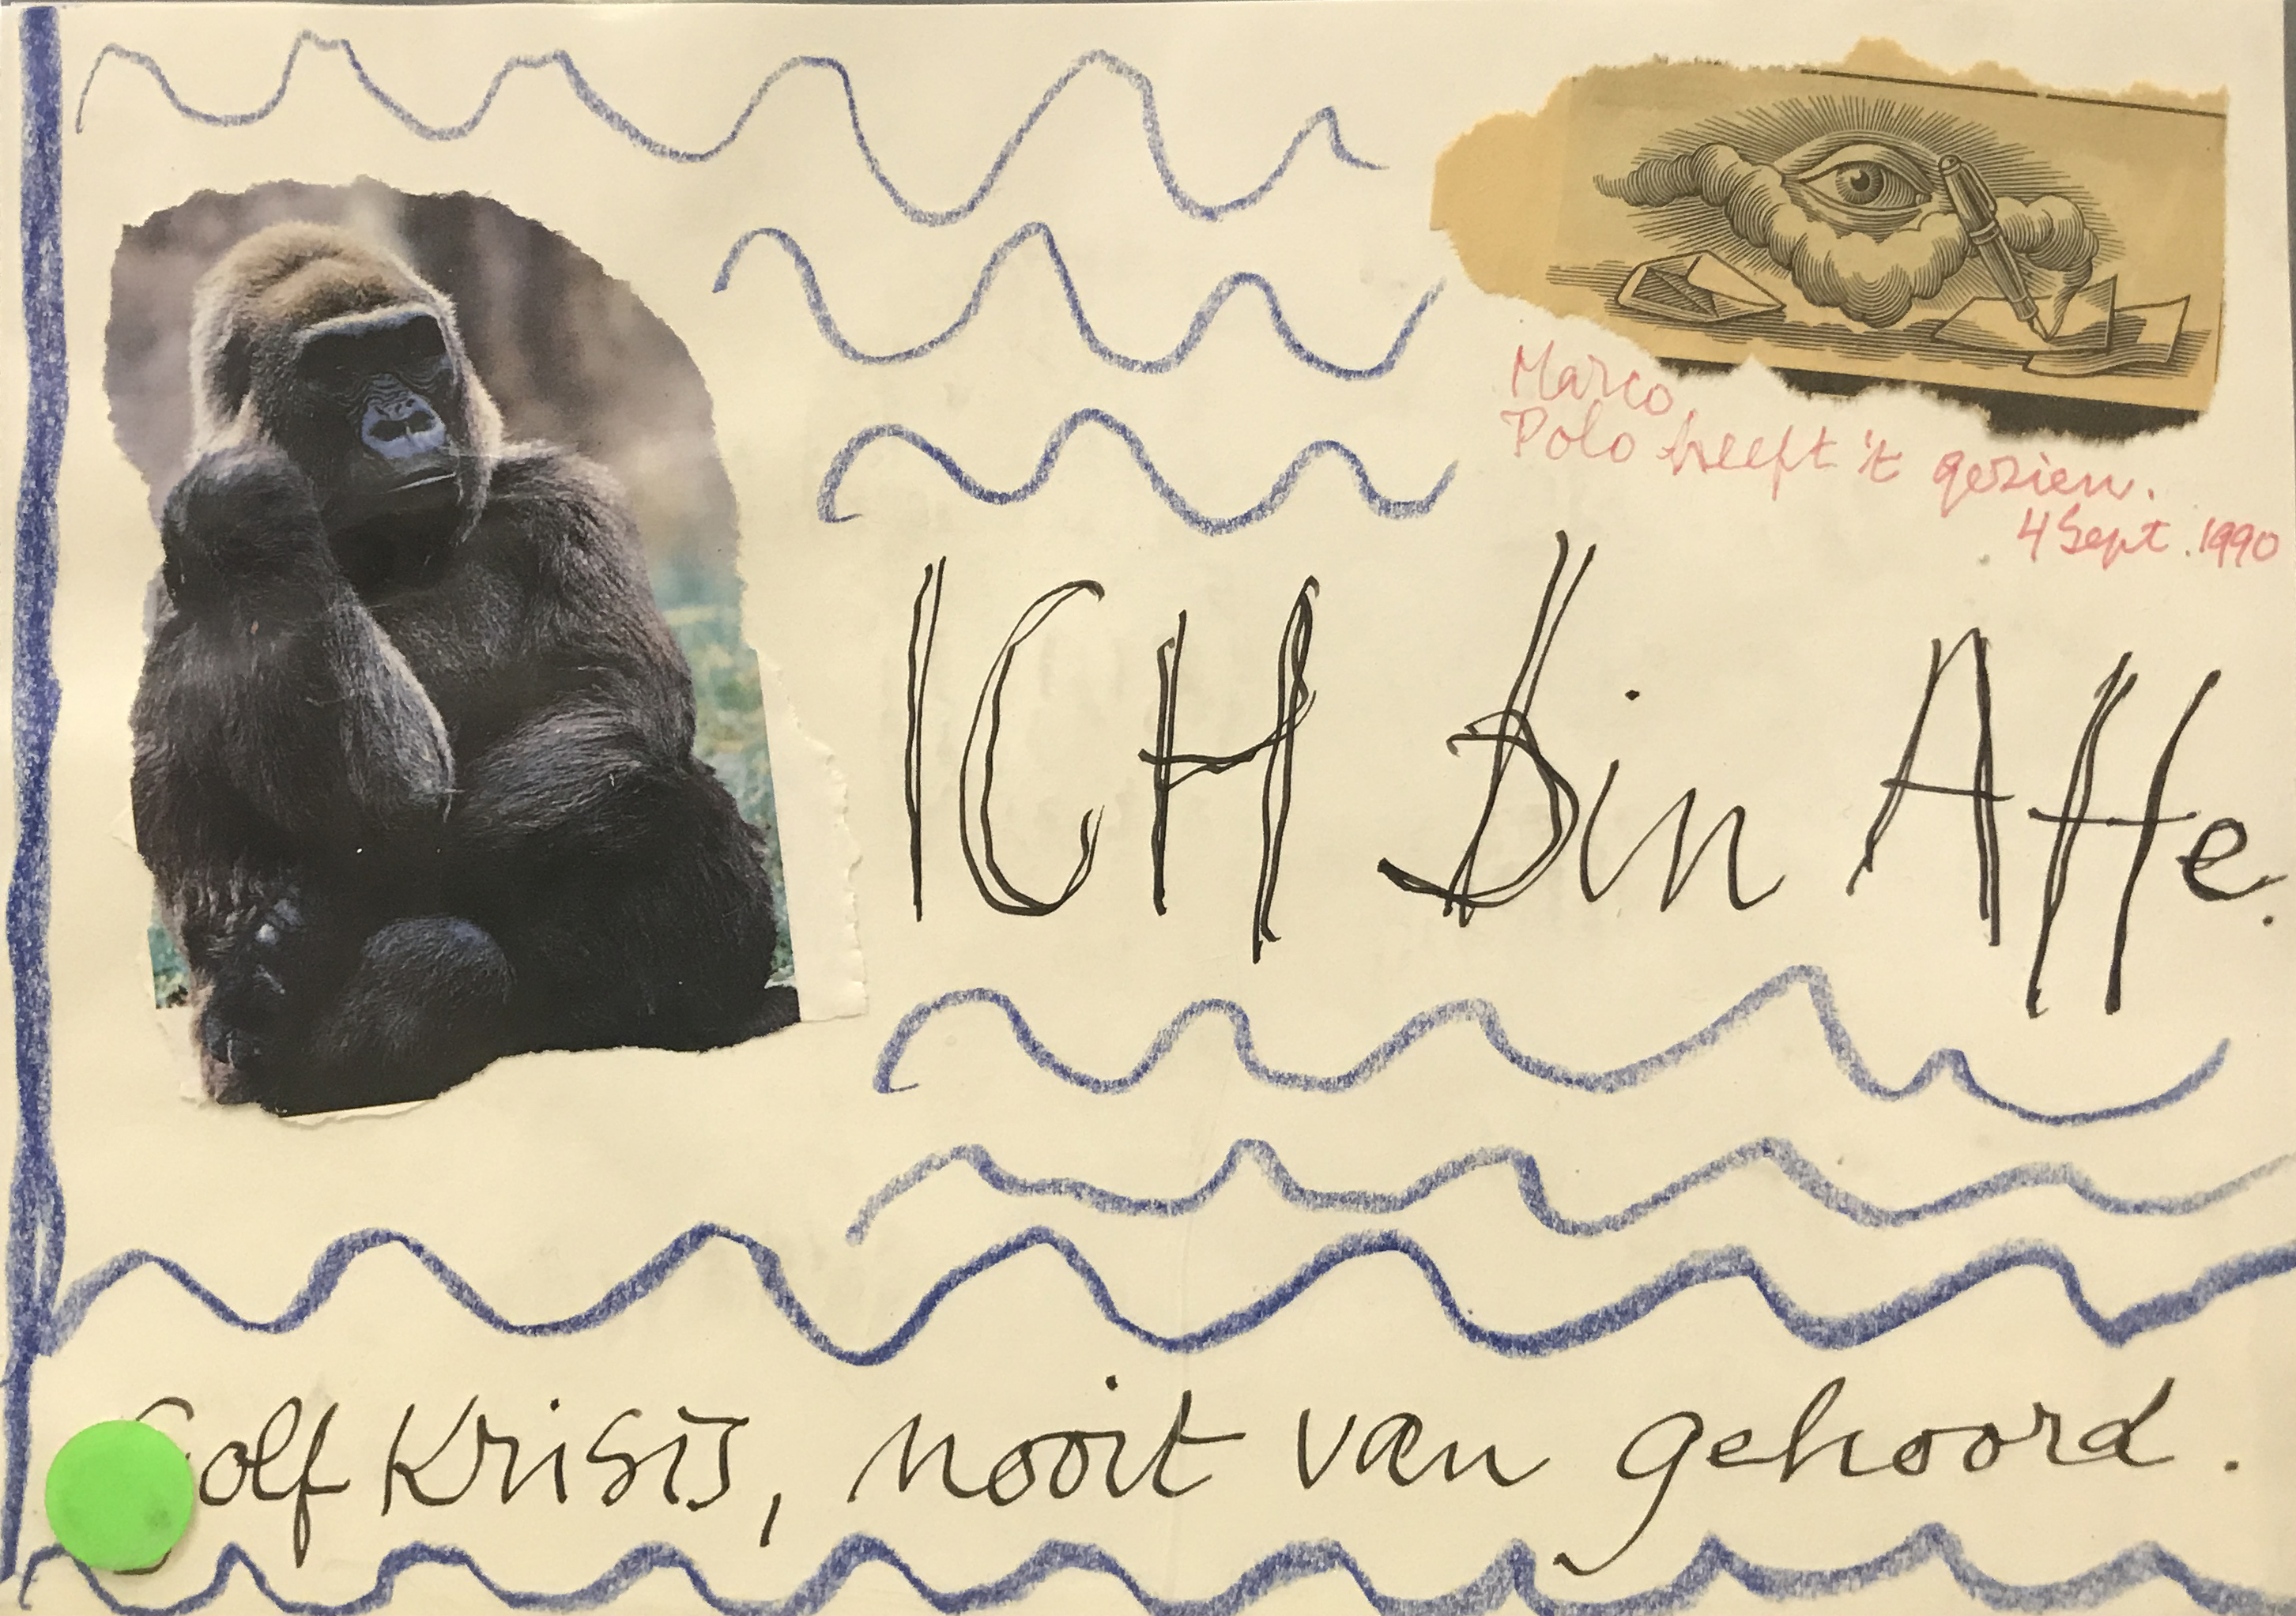 Marco
Polo heeft 't gezien.
4 Sept. 1990
ICH Bin Affe.
Golf Krisis, nooit van gehoord.